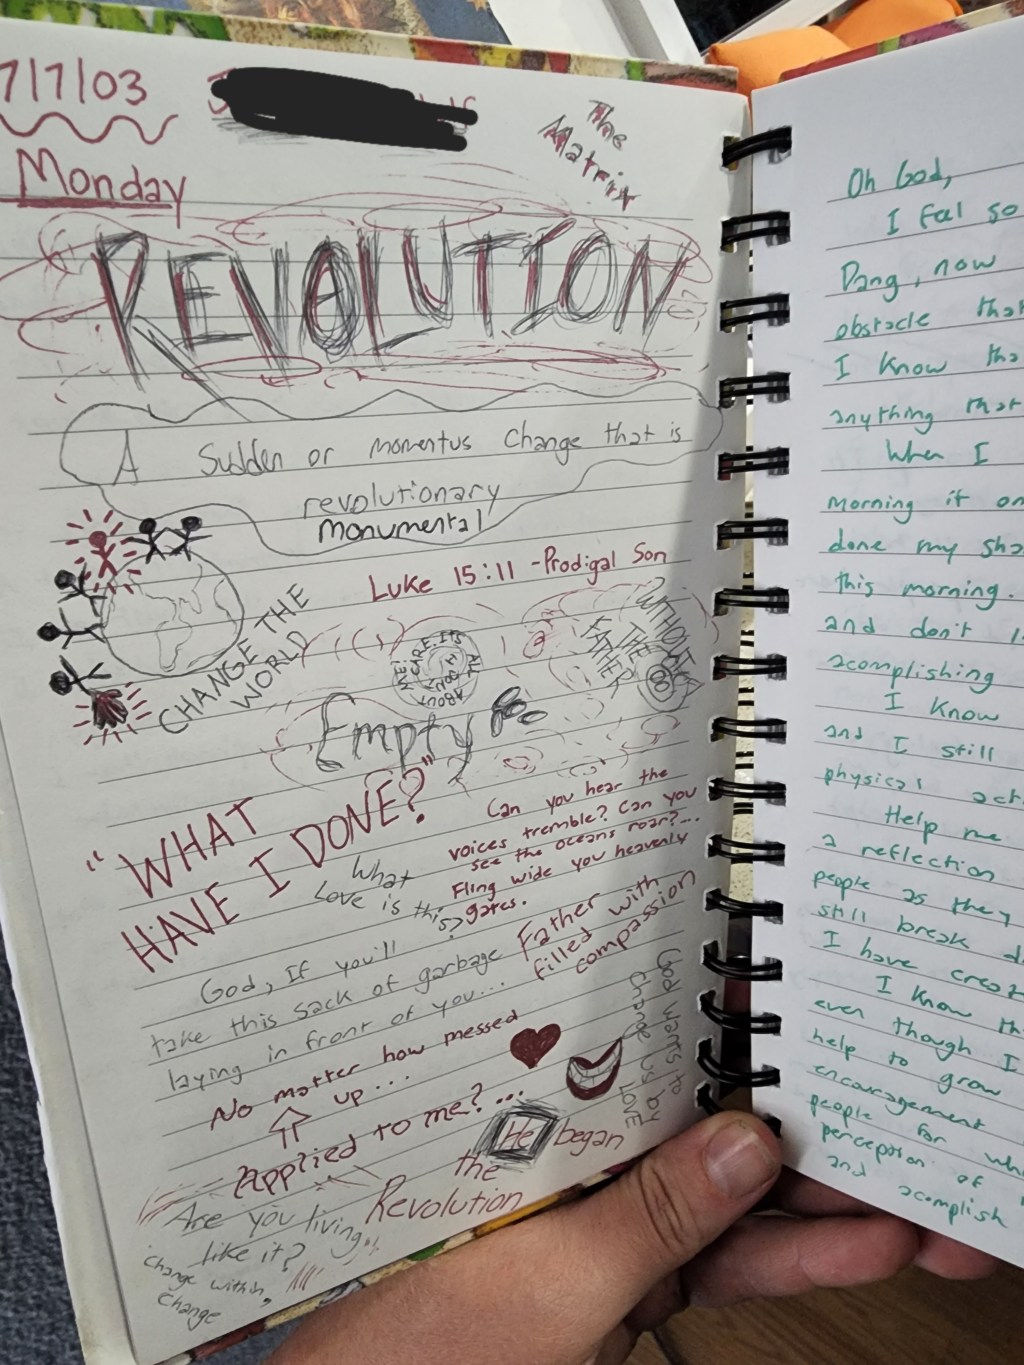 7/7/03
Monday
The
Matrix
REVOLUTION
A Sudden or momentus change that is
revolutionary
monumental
Luke 15:11 - Prodigal Son
CHANGE THE
WORLD
WITHOUT
THE
FATHER
I DON'T CARE ITS ALL ABOUT ME!
Empty
"WHAT
HAVE I DONE?"
Can you hear the
voices tremble? Can you
see the oceans roar?...
Fling wide you heavenly
gates.
What
Love is this?
Father with
filled compassion
God, If you'll
take this sack of garbage
laying in front of you...
No matter how messed
up...
Applied to me? ...
God wants to
change us by
LOVE
He began
the
Revolution
Are you living
like it?
change within,
change
Oh God,
I feel so
Dang, now
obstacle that
I know
anything that
When I
morning it
done my
this morning.
and don't
acomplishing
I know
and I still
physical
Help me
a reflection
people as they
still break
I have
I know
even though I
help to grow
encouragement
people for
perception of
and acomplish